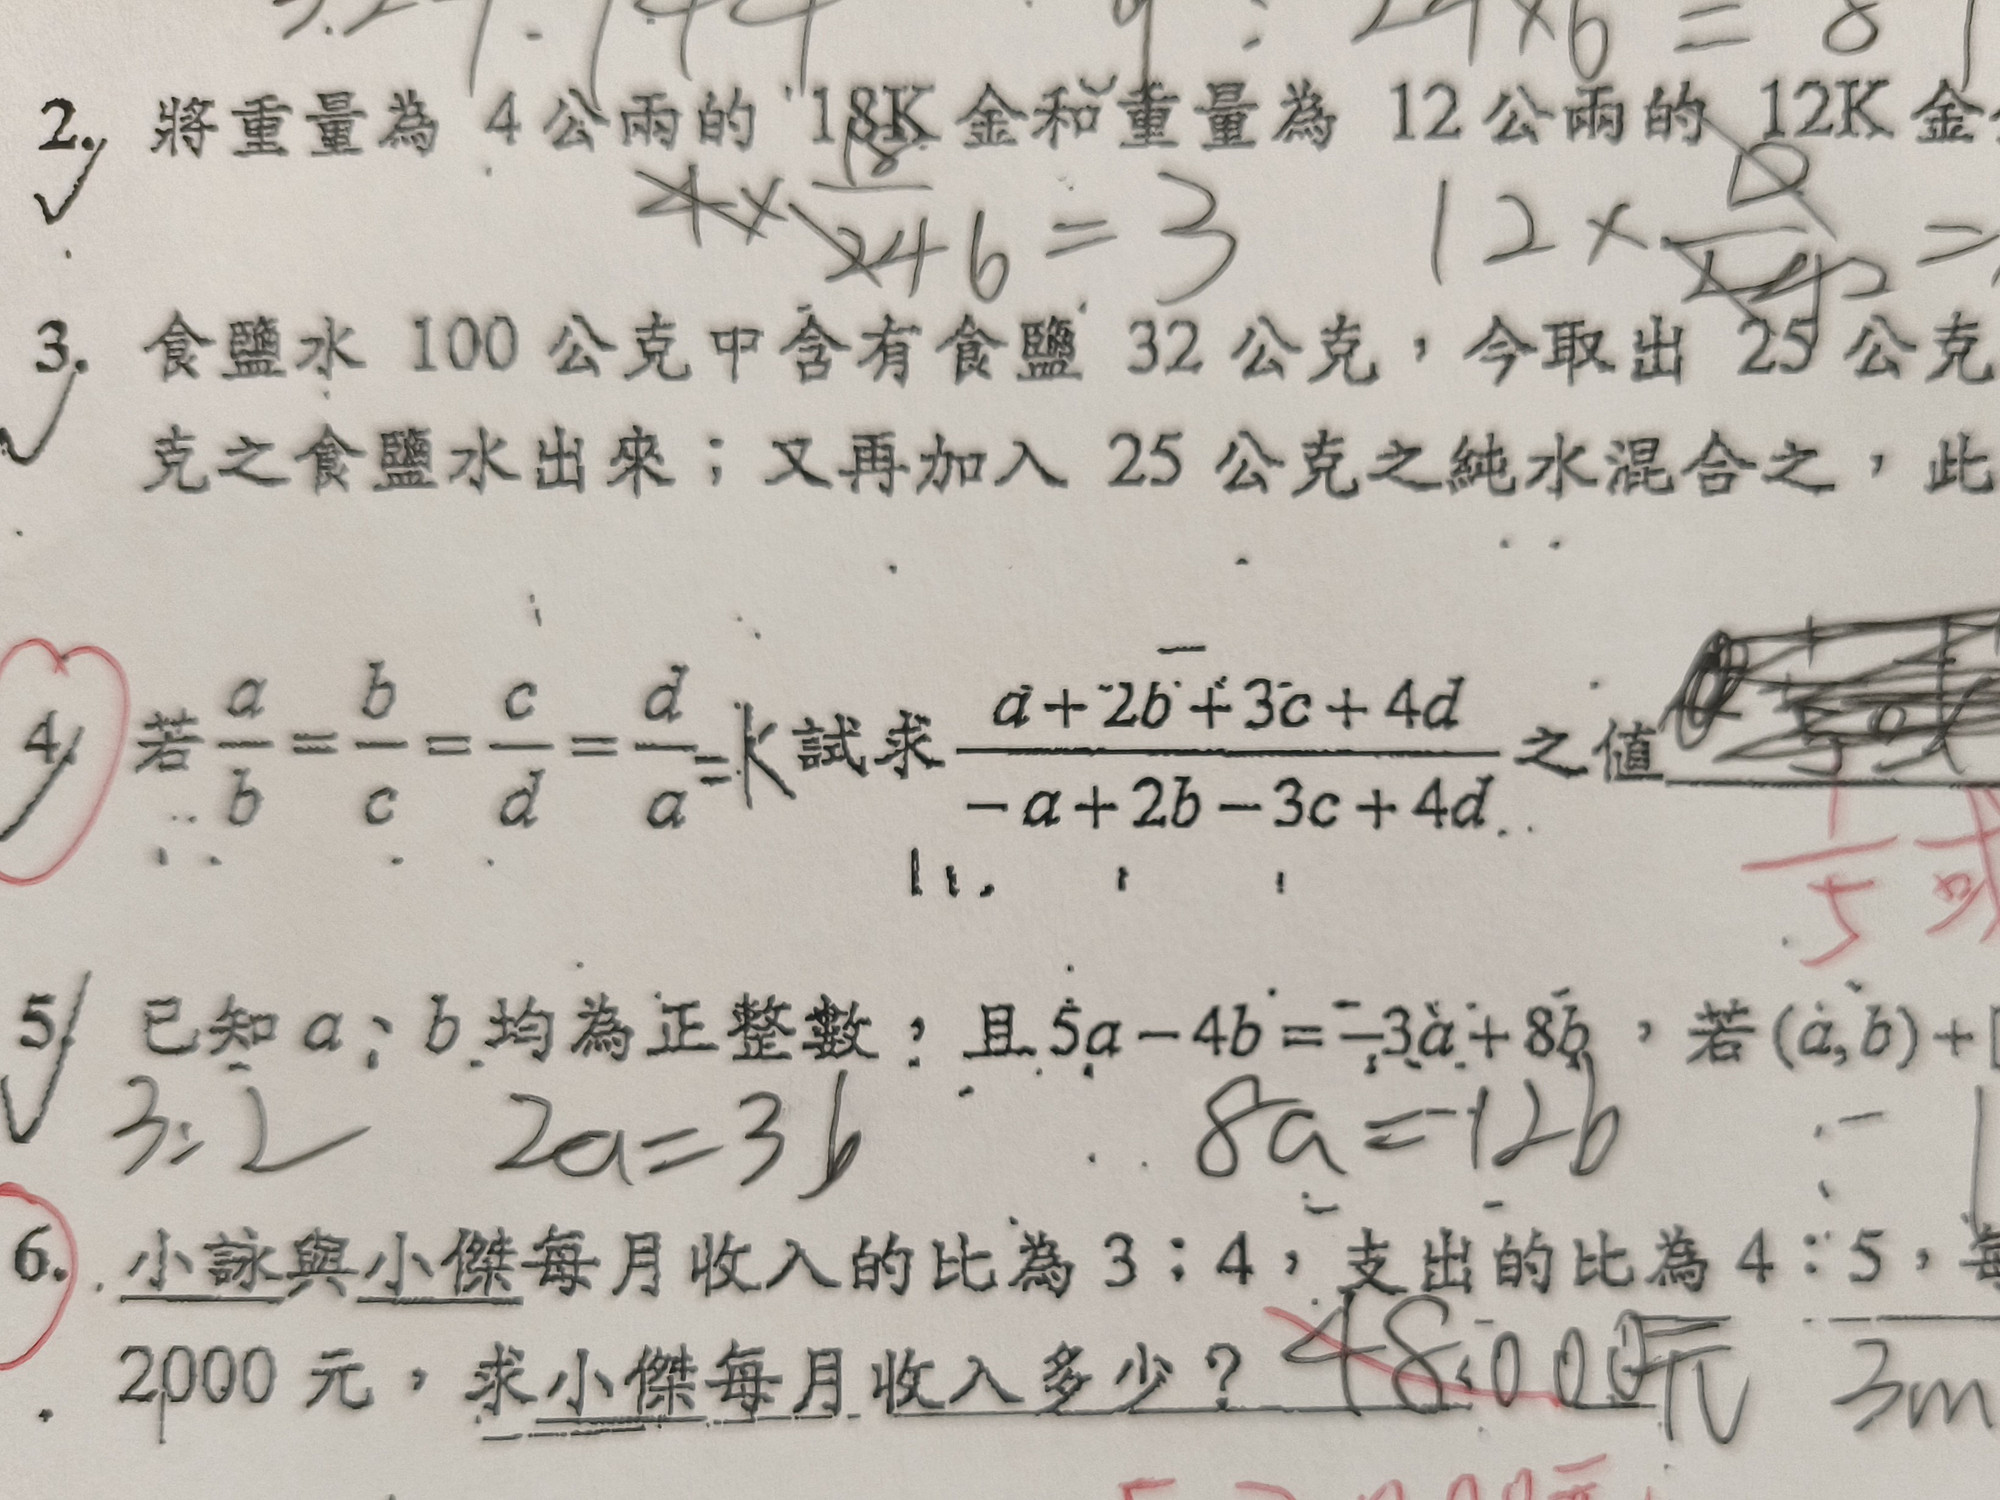 24×6=81
2. 將重量為 4 公兩的 18K 金和重量為 12 公兩的 12K 金
4×18/24 6=3 12×12/24 2=
3. 食鹽水 100 公克中含有食鹽 32 公克，今取出 25 公克
克之食鹽水出來；又再加入 25 公克之純水混合之，此
4. 若 a/b = b/c = c/d = d/a =k 試求 (a+2b+3c+4d)/(-a+2b-3c+4d) 之值
1/5 或
5. 已知 a；b 均為正整數，且 5a-4b=-3a+8b，若(a,b)+[
3:2 2a=3b 8a=12b
6. 小詠與小傑每月收入的比為 3：4，支出的比為 4：5，每
2000 元，求小傑每月收入多少？48000元 3m